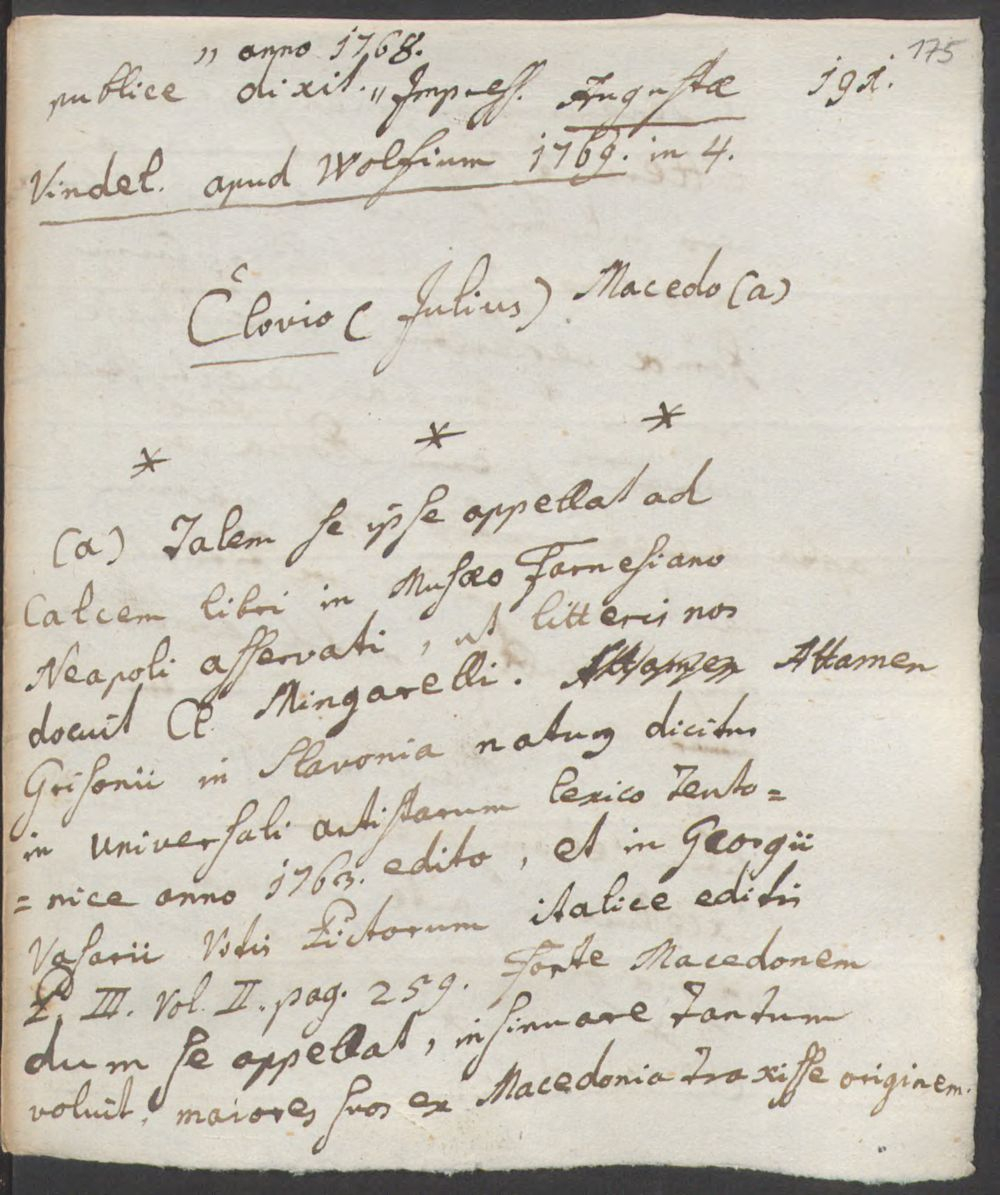 175
„ anno 1768.
publice dixit. „ Impress. Augustæ 191.
Vindel. apud Wolfium 1769. in 4.
Clovio ( Julius ) Macedo (a)
* * *
(a) Talem se ipse appellat ad
Calcem libri in Musæo Farnesiano
Neapoli asservati, ut litteris nos
docuit Cl. Mingarelli. Attamen Attamen
Grisonii in Slavonia natum dicitur
in universali artistarum lexico Teuto=
=nice anno 1763. edito, et in Georgii
Vasarii Vitis Pictorum italice editis
P. III. Vol. II. pag. 259. Forte Macedonem
dum se appellat, insinuare tantum
voluit, maiores suos ex Macedonia traxisse originem.